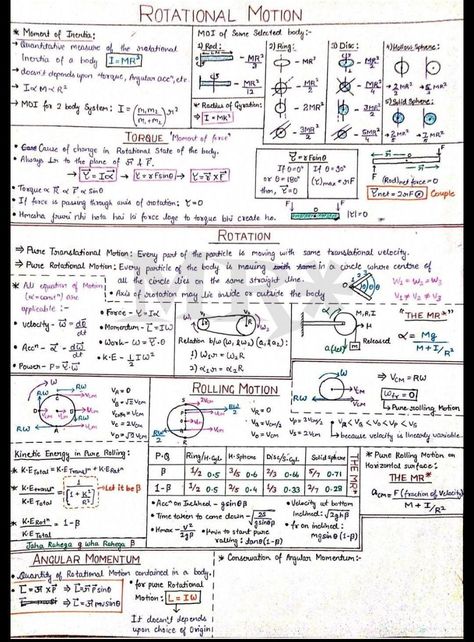 ROTATIONAL MOTION
* Moment of Inertia:
→ Quantitative measure of the rotational
Inertia of a body I = MR²
→ doesn't depends *torque, Angular accⁿ, etc
→ I ∝ M ∝ R²
→ MOI for 2 body System: I = (m₁m₂/m₁+m₂) r²
MOI of Some Selected body:-
1) Rod:
MR²/3
MR²/12
* Radius of Gyration:
I = MK²
2) Ring:
MR²
MR²/2
2MR²
3MR²/2
3) Disc:
MR²/2
MR²/4
3MR²/2
5MR²/4
4) Hollow Sphere:
2/3 MR² 5/3 MR²
5) Solid Sphere:
2/5 MR² 7/5 MR²
TORQUE 'Moment of force'
• Cause of change in Rotational State of the body.
• Always ⊥r to the plane of r & F.
→ τ = Iα → τ = rFsinθ → τ = r×F
• Torque ∝ R ∝ F ∝ sinθ
• If force is passing through axis of rotation: τ = 0
• Hmesha jruri nhi hota hai ki force lage to torque bhi create ho.
If θ = 0°
or θ = 180°
then, τ = 0
If θ = 90°
(τ)max = rF
(Rod) net force = 0
τnet = 2rF Couple
|τ| = 0
ROTATION
⇒ Pure Translational Motion: Every part of the particle is moving with same translational velocity.
⇒ Pure Rotational Motion: Every particle of the body is moving in a circle where centre of
all the circle lies on the same straight line.
• Axis of rotation may lie inside or outside the body
W₁ = W₂ = W₃
V₁ ≠ V₂ ≠ V₃
* All equation of Motion
(α = const") are
applicable :-
• velocity - ω = dθ/dt
• Accⁿ - α = dω/dt
• Power - P = τ·ω
• Force - τ = Iα
• Momentum - L = Iω
• Work - W = τ·θ
• K·E - 1/2 Iω²
Relation b/w (ω₁ & ω₂) (α₁ & α₂)
1) ω₁r = ω₂R
2) α₁r = α₂R
M, R, I
a(↓)
M
Released
"THE MR*"
α = Mg / M + I/R²
ROLLING MOTION
V_A = 0
V_B = √2 Vcm
V_C = 2Vcm
V_D = √2 Vcm
V_R = 0
V_Q = Vcm
V_P = 3Vcm/2
V_S = 2Vcm
→ Vcm = RW
Pure rolling Motion
• V_R < V_Q < V_P < V_S
because velocity is linearly variable.
Kinetic Energy in Pure Rolling:
* K·E Total = K·E Transⁿ + K·E Rotⁿ
* K·E Transⁿ / K·E Total = [1 / 1 + K²/R²] → Let it be β
* K·E Rotⁿ / K·E Total = 1 - β
Jaha Rahega g wha Rahega β
P·Q Ring/H·Cyl H·Sphere Disc/S·Cyl Solid sphere
β 1/2 0.5 3/5 0.6 2/3 0.66 5/7 0.71
1-β 1/2 0.5 2/5 0.4 1/3 0.33 2/7 0.28
THE MR*
• Accⁿ on Inclined - gsinθβ
• Time taken to come down - √(2S/gsinθβ)
• Hmax - V²/2gβ
• μmin to start pure rolling: tanθ(1-β)
• Velocity at bottom
inclined: √2ghβ
• fr on inclined:
mgsinθ(1-β)
* Pure Rolling Motion on
Horizontal surface:
THE MR*
acm = F (fraction of velocity) / M + I/R²
ANGULAR MOMENTUM
• Quantity of Rotational Motion contained in a body.
• L = r × P ⇒ L = rPsinθ
⇒ L = rmvsinθ
• for pure Rotational
Motion: L = Iω
It doesn't depends
upon choice of Origin
* Conservation of Angular Momentum:-